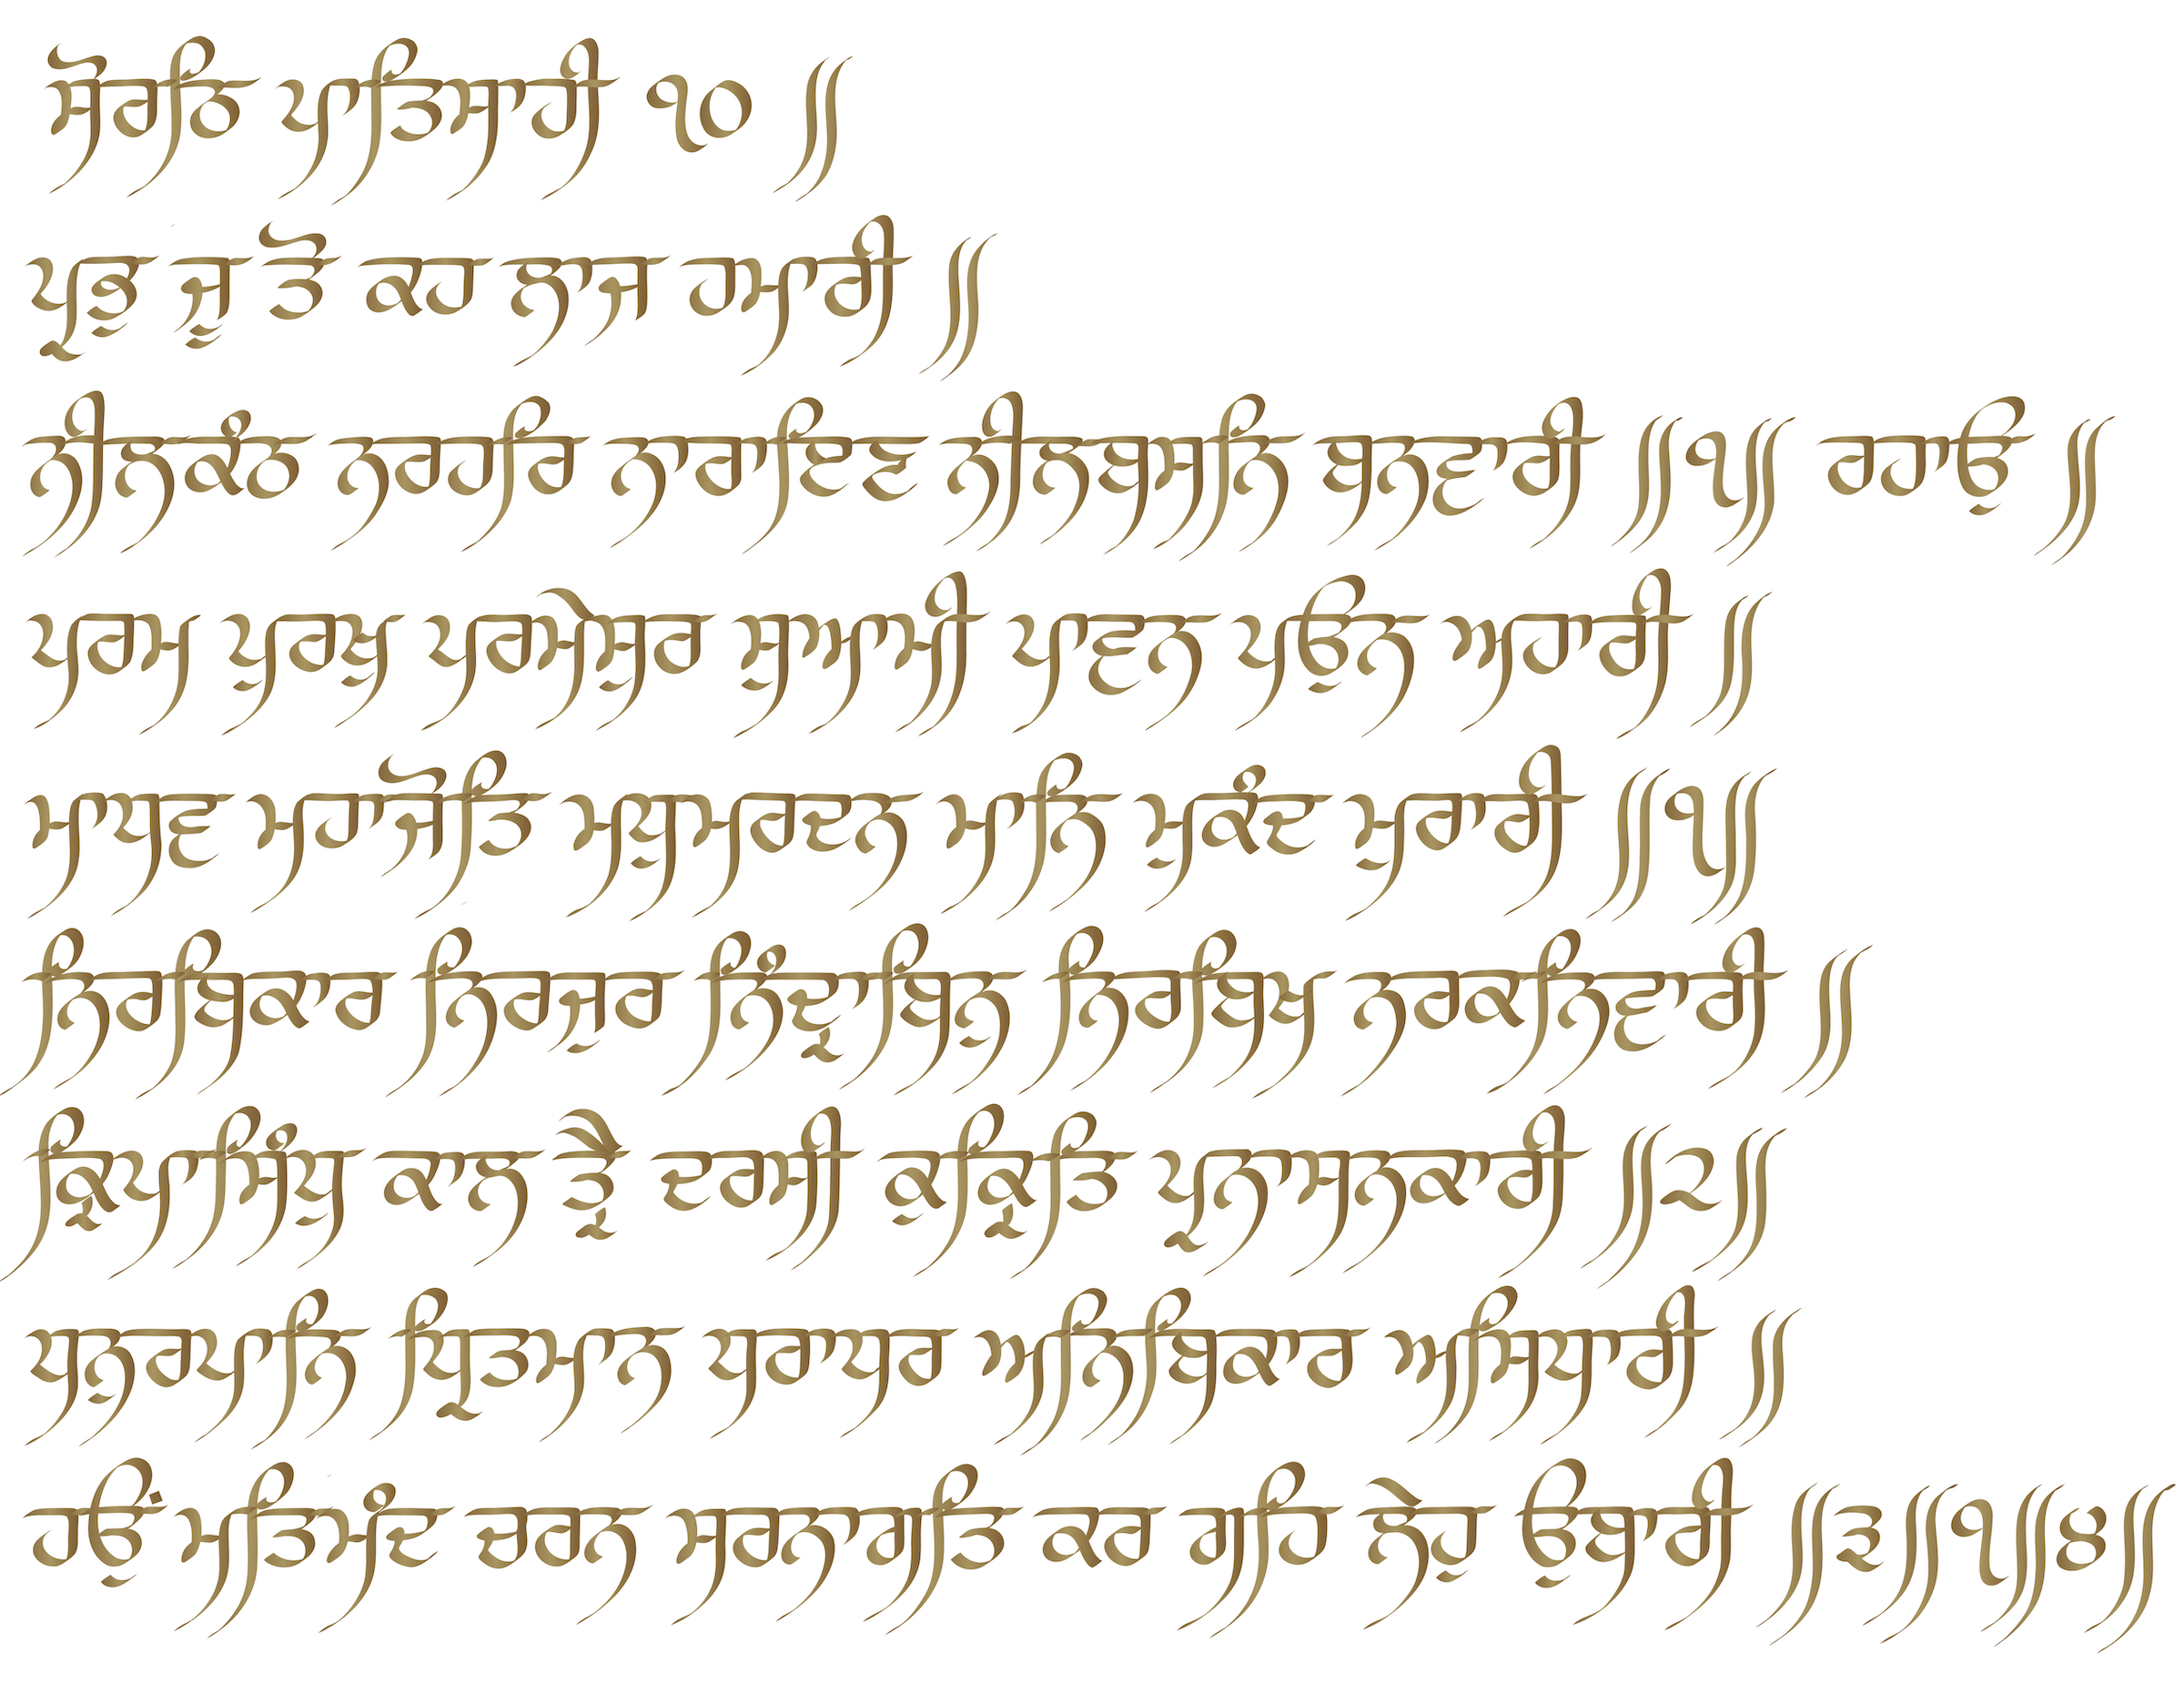 ਸੋਰਠਿ ਪਾਤਿਸਾਹੀ ੧੦ ॥
ਪ੍ਰਭ ਜੂ ਤੋ ਕਹ ਲਾਜ ਹਮਾਰੀ ॥
ਨੀਲਕੰਠ ਨਰਹਰਿ ਨਾਰਾਇਣ ਨੀਲਬਸਨਿ ਬਨਵਾਰੀ ॥੧॥ ਰਹਾਉ ॥
ਪਰਮ ਪੁਰਖ ਪਰਮੇਸੁਰ ਸੁਆਮੀ ਪਾਵਨ ਪਉਨ ਅਹਾਰੀ ॥
ਮਾਧਵ ਮਹਾਜੋਤਿ ਮਧੁਮਰਦਨ ਮਾਨਿ ਮੁਕੰਦ ਮੁਰਾਰੀ ॥੧॥
ਨਿਰਬਿਕਾਰ ਨਿਰਜੁਰ ਨਿੰਦ੍ਰਾਬਿਨੁ ਨਿਰਬਿਖ ਨਰਕਨਿਵਾਰੀ ॥
ਕ੍ਰਿਪਾਸਿੰਧੁ ਕਾਲ ਤ੍ਰੈ ਦਰਸੀ ਕੁਕ੍ਰਿਤ ਪ੍ਰਨਾਸਨਕਾਰੀ ॥੨॥
ਧਨੁਰਪਾਨਿ ਧ੍ਰਿਤਮਾਨ ਧਰਾਧਰ ਅਨਿਬਿਕਾਰ ਅਸਿਧਾਰੀ ॥
ਹਉਂ ਮਤਿਮੰਦ ਚਰਨ ਸਰਨਾਗਤਿ ਕਰ ਗਹਿ ਲੇਹੁ ਉਬਾਰੀ ॥੩॥੧॥੪॥